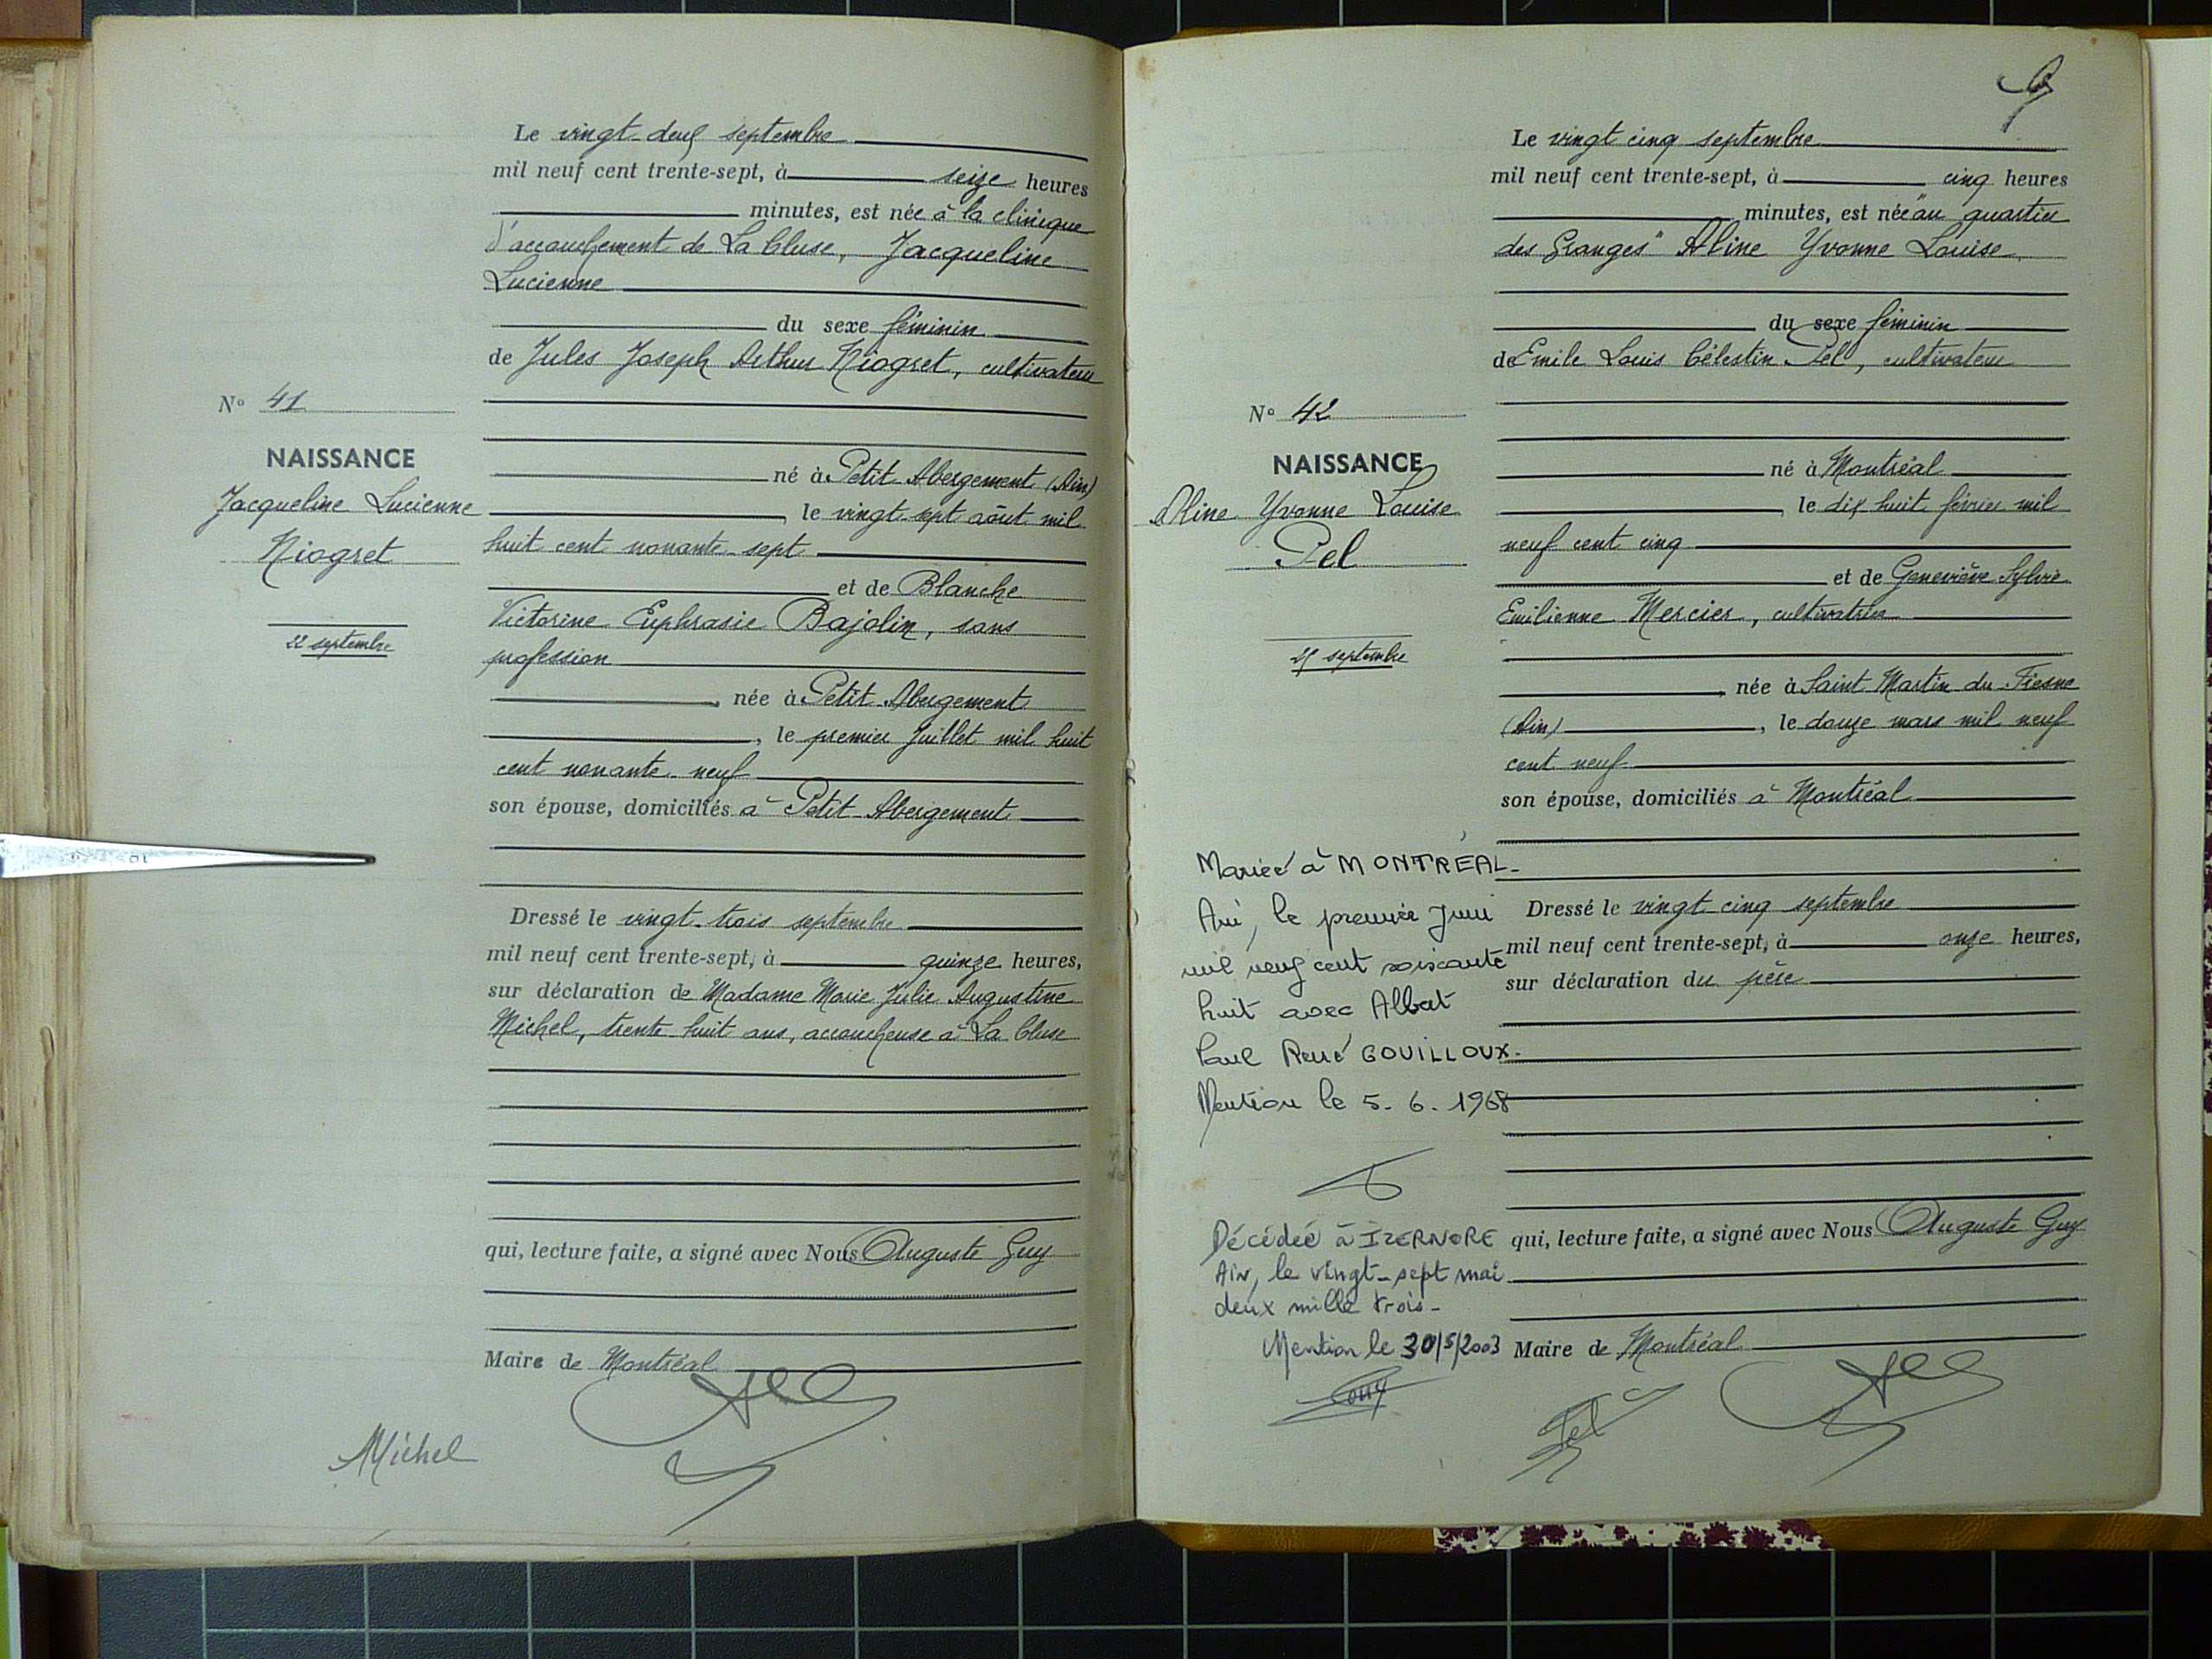 Le vingt-deux septembre
mil neuf cent trente-sept, à seize heures
minutes, est née à la clinique
d'accouchement de La Cluse, Jacqueline
Lucienne
du sexe féminin
de Jules Joseph Arthur Niogret, cultivateur
né à Petit Abergement (Ain)
le vingt-sept août mil
huit cent nonante-sept
et de Blanche
Victorine Euphrasie Bajolin, sans
profession
, née à Petit Abergement
, le premier Juillet mil huit
cent nonante-neuf
son épouse, domiciliés à Petit-Abergement
Dressé le vingt-trois septembre
mil neuf cent trente-sept, à quinze heures,
sur déclaration de Madame Marie Julie Augustine
Michel, trente huit ans, accoucheuse à La Cluse
qui, lecture faite, a signé avec Nous Auguste Guy
Maire de Montréal
Michel
N° 41
NAISSANCE
Jacqueline Lucienne
Niogret
22 septembre
Le vingt cinq septembre
mil neuf cent trente-sept, à cinq heures
minutes, est née "au quartier
des Granges" Aline Yvonne Louise
du sexe féminin
de Emile Louis Célestin Pel, cultivateur
né à Montréal
, le dix huit février mil
neuf cent cinq
et de Geneviève Sylvie
Emilienne Mercier, cultivatrice
, née à Saint Martin du Fresne
(Ain) , le douze mars mil neuf
cent neuf
son épouse, domiciliés à Montréal
Dressé le vingt cinq septembre
mil neuf cent trente-sept, à onze heures,
sur déclaration du père
qui, lecture faite, a signé avec Nous Auguste Guy
Maire de Montréal
Pel
N° 42
NAISSANCE
Aline Yvonne Louise
Pel
25 septembre
Mariée à MONTRÉAL-
Ain, le premier Juin
mil neuf cent soixante
huit avec Albert
Paul René GOUILLOUX.
Mention le 5. 6. 1968
Décédée à IZERNORE
Ain, le vingt-sept mai
deux mille trois-
Mention le 30/5/2003